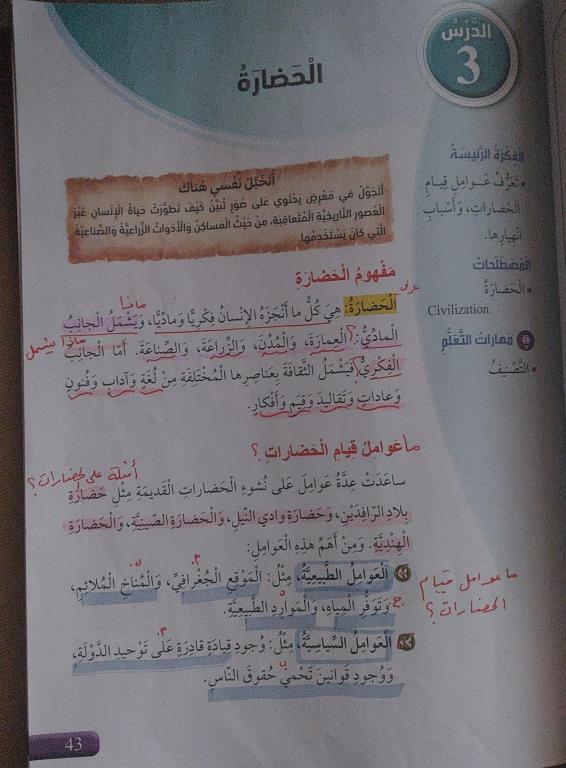 الدَّرْسُ
3
الْحَضارَةُ
الْفِكْرَةُ الرَّئيسَةُ
• تَعَرُّفُ عَوامِلِ قِيامِ
الْحَضاراتِ، وَأَسْبابِ
انْهِيارِها.
الْمُصْطَلَحاتُ
• الْحَضارَةُ
Civilization
مَهاراتُ التَّعَلُّمِ
• التَّصْنيفُ
أَتَخَيَّلُ نَفْسي هُناكَ
أَتَجَوَّلُ في مَعْرِضٍ يَحْتَوي عَلى صُوَرٍ تُبَيِّنُ كَيْفَ تَطَوَّرَتْ حَياةُ الْإِنْسانِ عَبْرَ
الْعُصورِ التّاريخِيَّةِ الْمُتَعاقِبَةِ، مِنْ حَيْثُ الْمَساكِنُ وَالْأَدَواتُ الزِّراعِيَّةُ وَالصِّناعِيَّةُ
الَّتي كانَ يَسْتَخْدِمُها.
مَفْهومُ الْحَضارَةِ
عرفي
الْحَضارَةُ: هِيَ كُلُّ ما أَنْجَزَهُ الْإِنْسانُ فِكْرِيًّا وَمادِّيًّا، وَيَشْمَلُ الْجانِبُ
ماذا
الْمادِّيُّ: الْعِمارَةَ، وَالْمُدُنَ، وَالزِّراعَةَ، وَالصِّناعَةَ. أَمّا الْجانِبُ
ماذا يشمل
الْفِكْرِيُّ فَيَشْمَلُ الثَّقافَةَ بِعَناصِرِها الْمُخْتَلِفَةِ مِنْ لُغَةٍ وَآدابٍ وَفُنونٍ
وَعاداتٍ وَتَقاليدَ وَقِيَمٍ وَأَفْكارٍ.
ما عَوامِلُ قِيامِ الْحَضاراتِ ؟
أمثلة على الحضارات ؟
ساعَدَتْ عِدَّةُ عَوامِلَ عَلى نُشوءِ الْحَضاراتِ الْقَديمَةِ مِثْلِ حَضارَةِ
بِلادِ الرّافِدَيْنِ، وَحَضارَةِ وادي النّيلِ، وَالْحَضارَةِ الصّينِيَّةِ، وَالْحَضارَةِ
الْهِنْدِيَّةِ. وَمِنْ أَهَمِّ هذِهِ الْعَوامِلِ:
الْعَوامِلُ الطَّبيعِيَّةُ، مِثْلُ: الْمَوْقِعِ الْجُغْرافِيِّ، وَالْمُناخِ الْمُلائِمِ،
وَتَوَفُّرِ الْمِياهِ، وَالْمَوارِدِ الطَّبيعِيَّةِ.
ما عوامل قيام
الحضارات ؟
الْعَوامِلُ السِّياسِيَّةُ، مِثْلُ: وُجودِ قِيادَةٍ قادِرَةٍ عَلى تَوْحيدِ الدَّوْلَةِ،
وَوُجودِ قَوانينَ تَحْمي حُقوقَ النّاسِ.
43